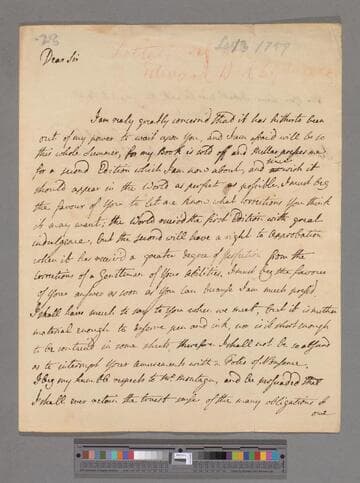 23
13 1757
Dear Sir
I am realy greatly concerned that it has hitherto been
out of my power to wait upon you, and I am afraid will be so
this whole Summer, for my Book is sold off and Millar presses me
for a second Edition which I am now about, and since I wish it
should appear in the World as perfect as possible, I must beg
the favour of you to let me know what corrections you think
it may want; the World received the first Edition with great
indulgence, but the second will have a right to approbation
when it has received a greater degree of perfection from the
corrections of a Gentleman of your abilities. I must beg the favour
of your answer as soon as you can because I am much pressed.
I shall have much to say to you when we meet, but it is neither
material enough to deserve pen and ink, nor is it short enough
to be contained in some sheets, therefore I shall not be so absurd
as to interrupt your amusements with a Folio of Nonsense.
I beg my humble respects to Mrs Montagu, and be persuaded that
I shall ever retain the truest sense of the many obligations I
owe